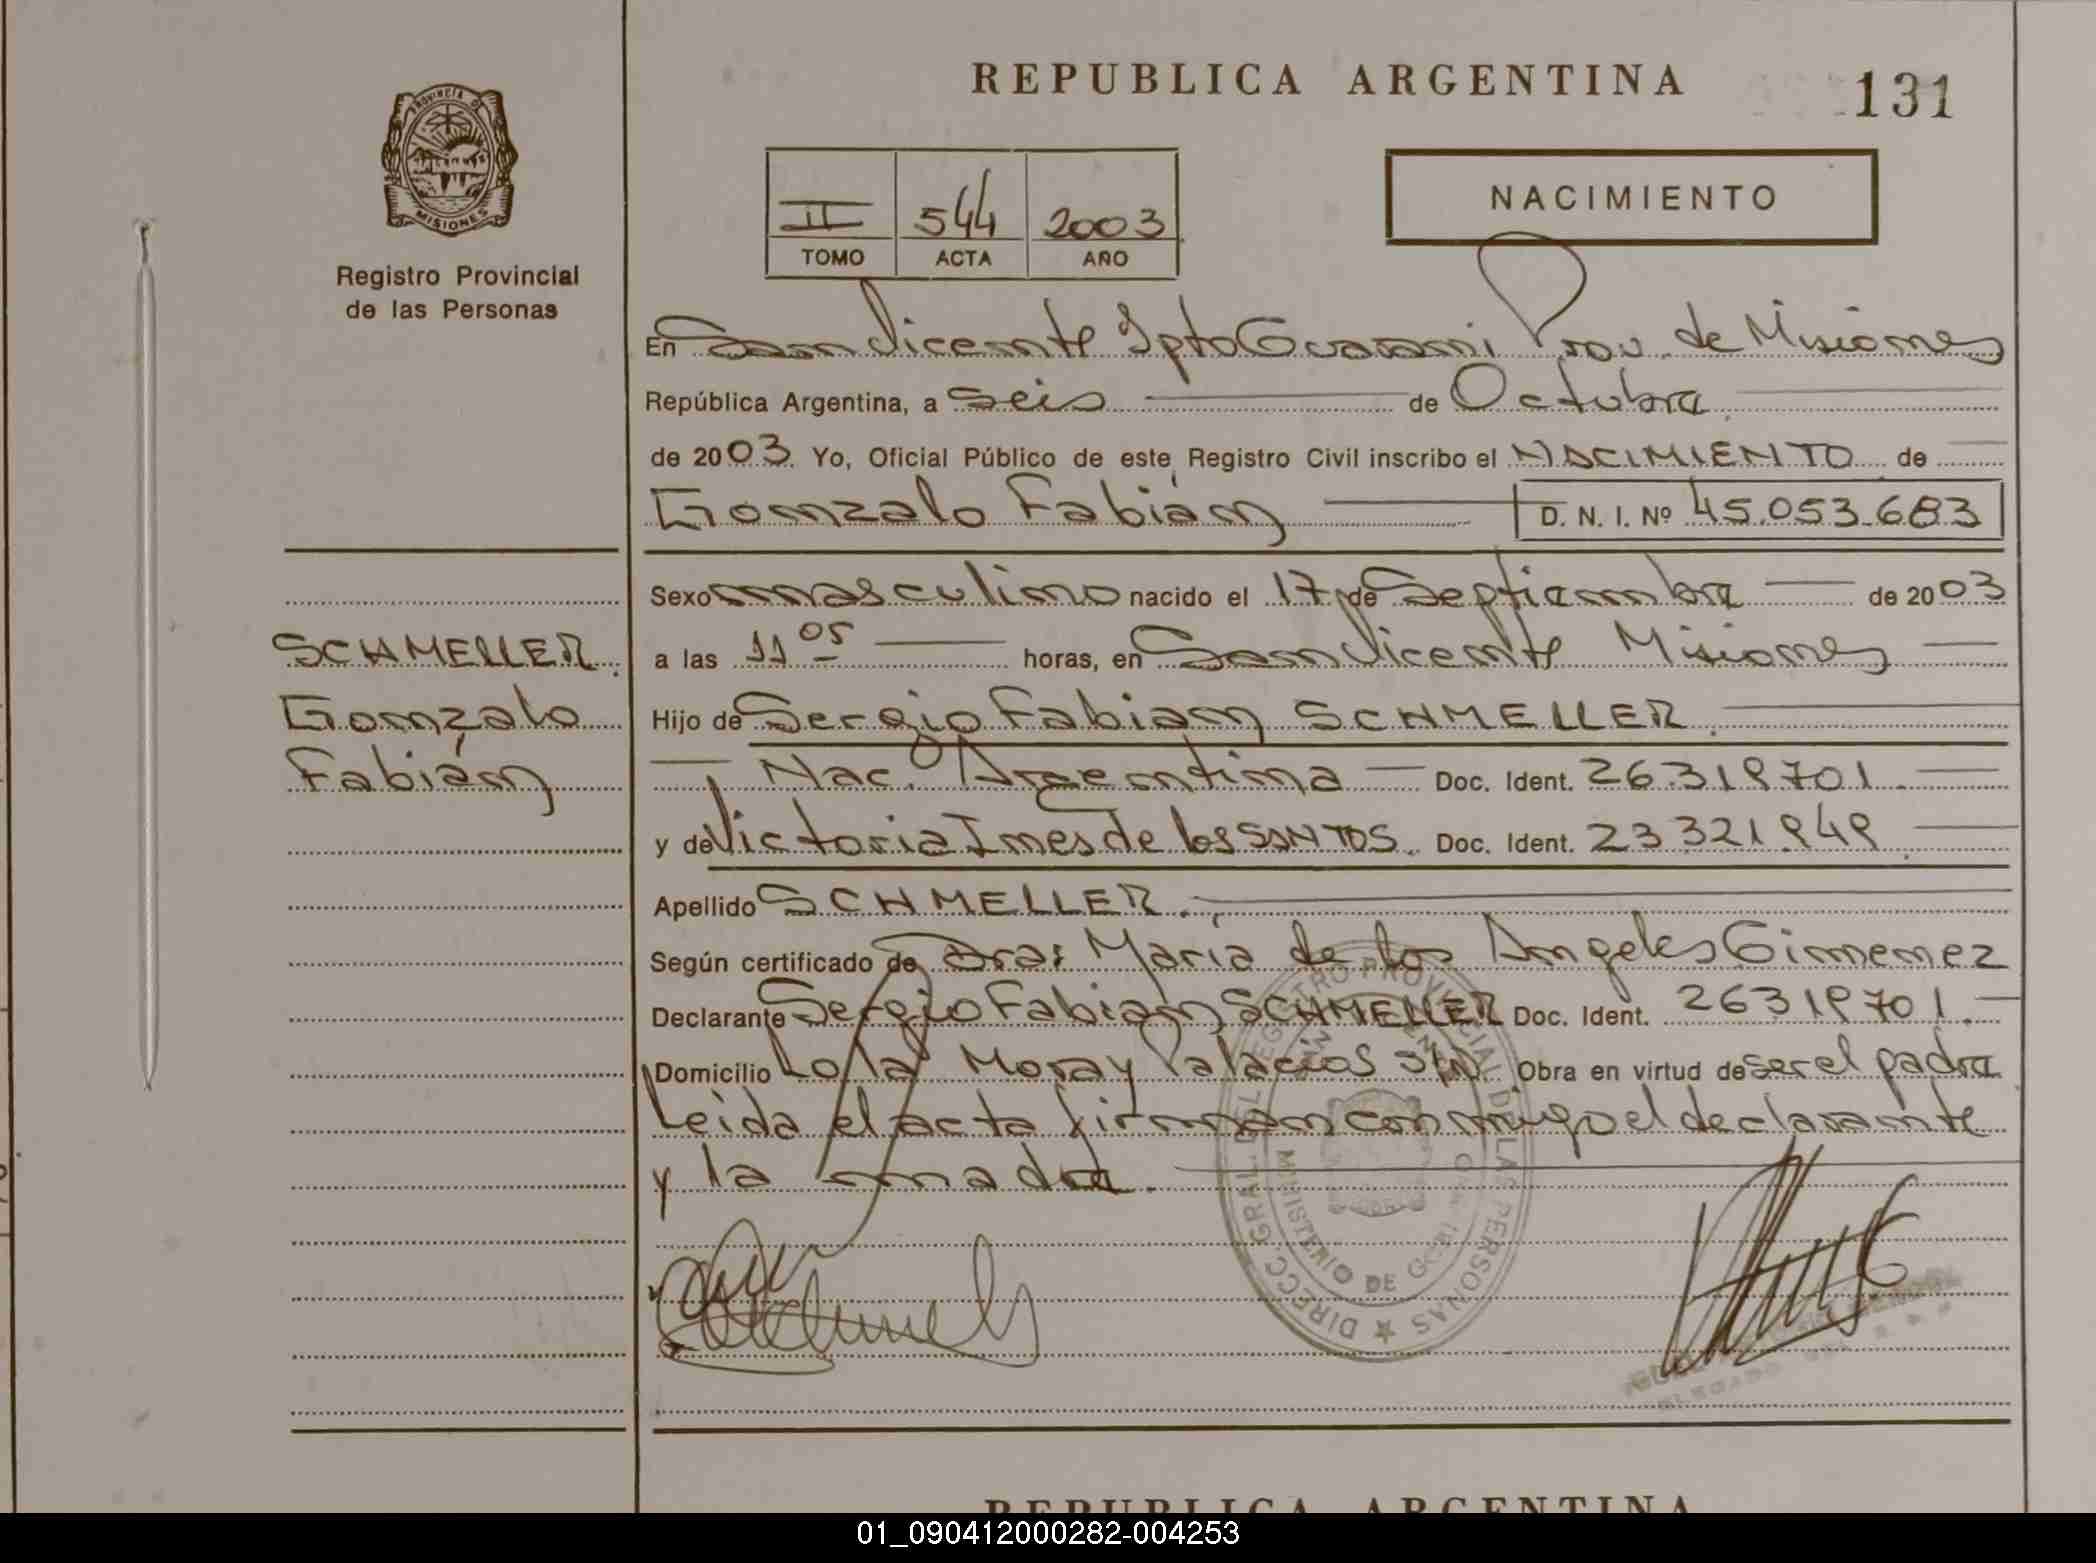 REPUBLICA ARGENTINA
131
PROVINCIA DE
MISIONES
Registro Provincial
de las Personas
II 544 2003
TOMO ACTA AÑO
NACIMIENTO
En San Vicente Dpto Guarani Prov. de Misiones
República Argentina, a seis de Octubre
de 2003. Yo, Oficial Público de este Registro Civil inscribo el NACIMIENTO de
Gonzalo Fabián D. N. I. Nº 45.053.683
Sexo masculino nacido el 17 de Septiembre de 2003
SCHMELLER
a las 11 05 horas, en San Vicente Misiones
Gonzalo
Hijo de Sergio Fabian SCHMELLER
Fabián
Nac. Argentina Doc. Ident. 26319701
y de Victoria Ines de los SANTOS. Doc. Ident. 23321949
Apellido SCHMELLER.
Según certificado de Dra: María de los Angeles Gimenez
Declarante Sergio Fabian SCHMELLER Doc. Ident. 26319701.
Domicilio Lola Mora y Palacios S/N Obra en virtud de ser el padre
Leida el acta firman conmigo el declarante
y la madre.
DIRECC. GRAL. DEL REGISTRO PROVINCIAL DE LAS PERSONAS
MINISTERIO DE GOB.
REPUBLICA ARGENTINA
01_090412000282-004253